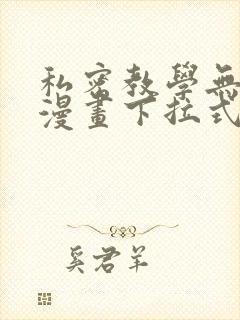 私密教學無
漫畫下拉式
奚君羊